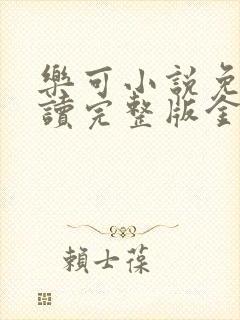 樂可小說免
讀完整版全
賴士葆